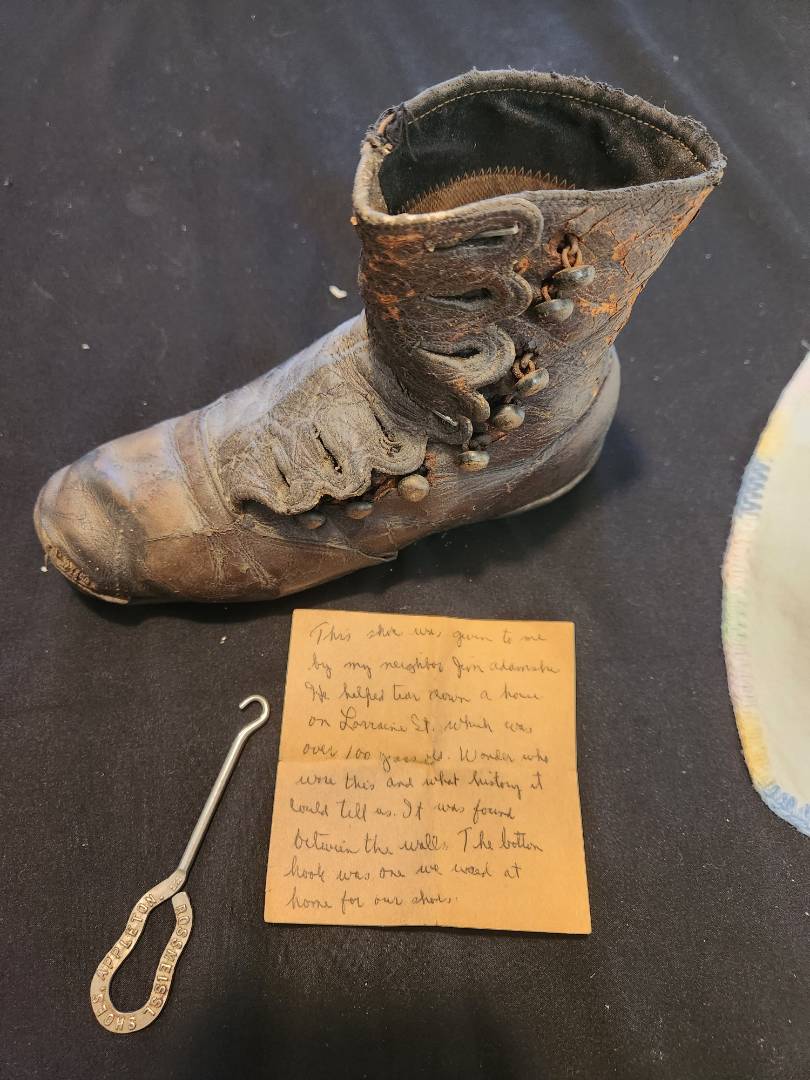 This shoe was given to me
by my neighbor Jim adamske
He helped tear down a house
on Lorraine St. which was
over 100 years old. Wonder who
wore this and what history it
could tell us. It was found
between the walls. The botton
hook was one we used at
home for our shoes.
ROSSMEISSL SHOES. APPLETON.